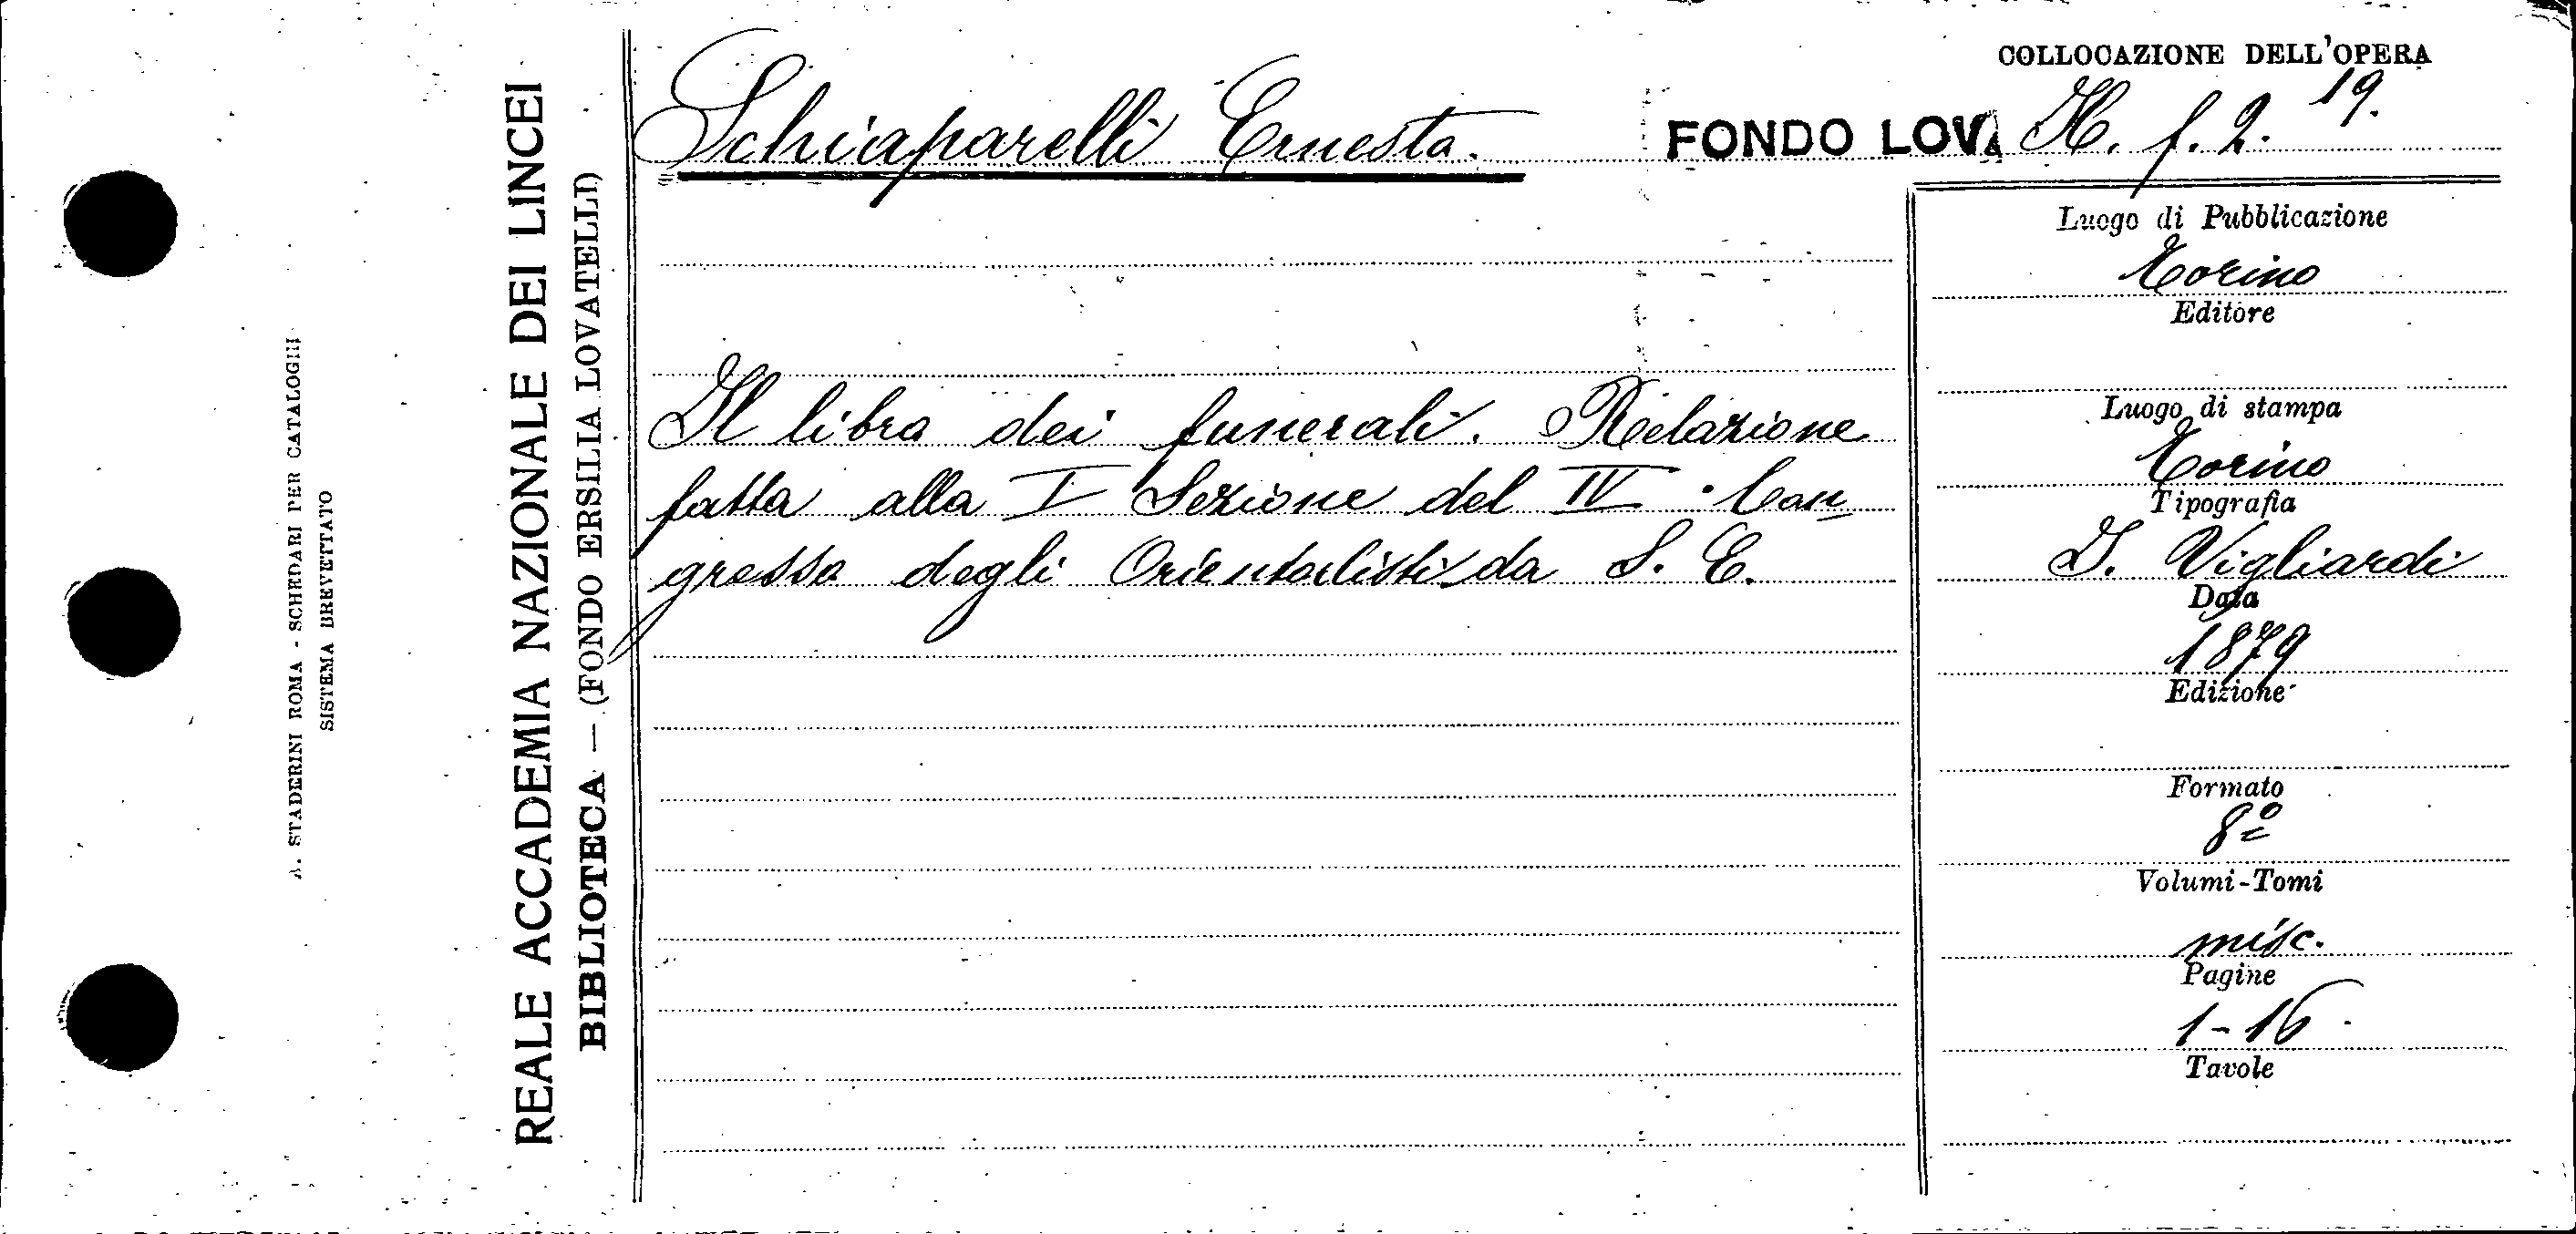 COLLOCAZIONE DELL'OPERA
Schiaparelli Ernesto.
FONDO LOV. H. f. 2. 19.
Il libro dei funerali. Relazione
fatta alla I Sezione del IV Con
gresso degli Orientalisti da S. E.
Luogo di Pubblicazione
Torino
Editore
Luogo di stampa
Torino
Tipografia
D. Vigliardi
Data
1879
Edizione
Formato
8º
Volumi-Tomi
misc.
Pagine
1-16
Tavole
REALE ACCADEMIA NAZIONALE DEI LINCEI
BIBLIOTECA — (FONDO ERSILIA LOVATELLI)
A. STADERINI ROMA - SCHEDARI PER CATALOGHI
SISTEMA BREVETTATO